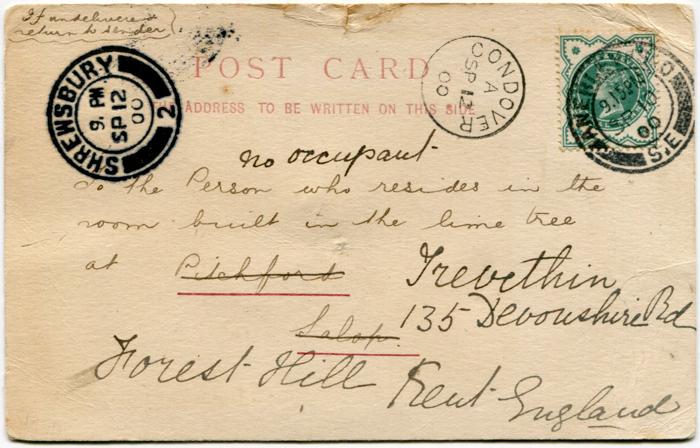 If undelivered
return to sender
POST CARD
THE ADDRESS TO BE WRITTEN ON THIS SIDE
SHREWSBURY
9. PM
SP 12
00
2
CONDOVER
A
SP 12
00
S.E.
no occupant
To the Person who resides in the
room built in the lime tree
at Pitchford Trevethin
Salop. 135 Devonshire Rd
Forest Hill Kent England